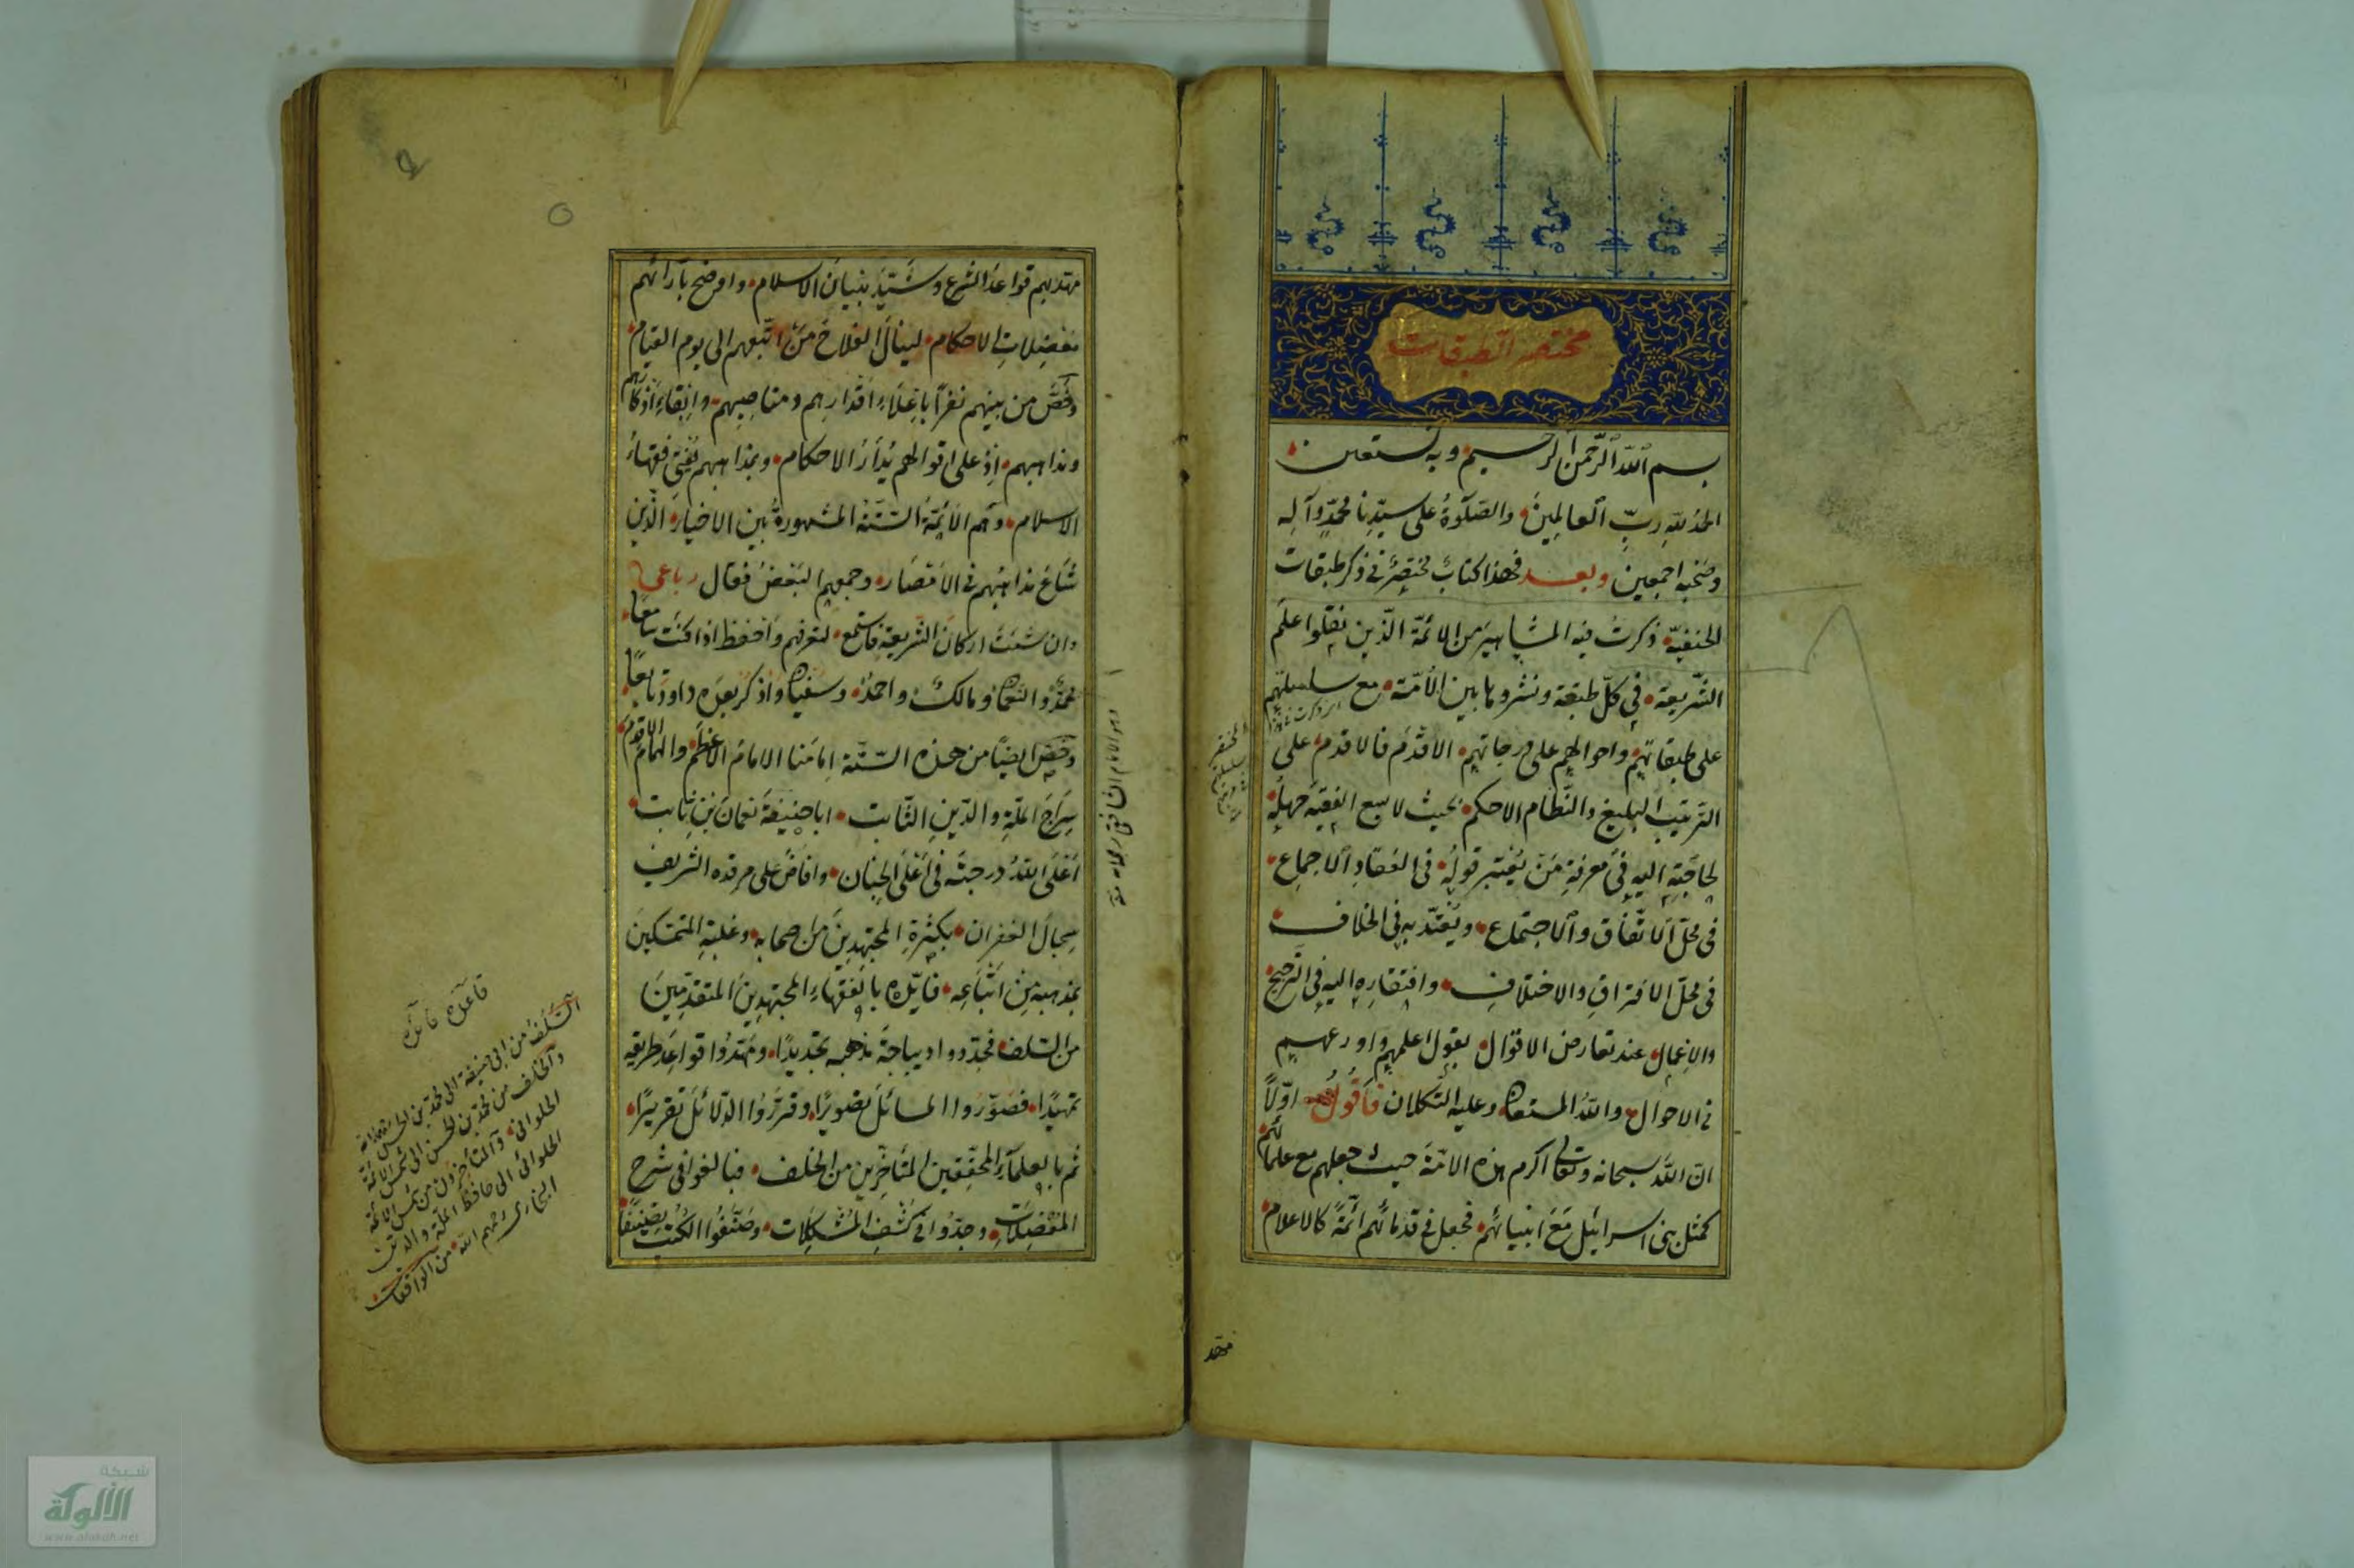 مختصر الطبقات
بسم الله الرّحمن الرّحيم وبه نستعين
الحمد لله ربّ العالمين والصّلوة على سيّدنا محمّد وآله
وصحبه اجمعين وبعد فهذا كتاب مختصر في ذكر طبقات
الحنفيّة ذكرت فيه المشاهير من الائمّة الّذين نقلوا علم
الشّريعة في كلّ طبقة ونشروها بين الأمّة مع سلسلتهم
على طبقاتهم واحوالهم على درجاتهم الاقدم فالاقدم على
التّرتيب البليغ والنّظام الاحكم بحيث لا يسع الفقيه جهله
لحاجته اليه في معرفة من يعتبر قوله في انعقاد الاجماع
في محلّ الاتّفاق والاجتماع ويعتدّ به في الخلاف
في محلّ الافتراق والاختلاف وافتقاره اليه في الترجيح
والاعمال عند تعارض الاقوال بقول اعلمهم واورعهم
في الاحوال والله المستعان وعليه التّكلان فأقول اوّلاً
انّ الله سبحانه وتعالى اكرم هذه الامّة حيث جعلهم مع علمائهم
كمثل بنى اسرائيل مع انبيائهم فجعل في قدمائهم ائمّة كالاعلام
مهّد
مهّد بهم قواعد الشّرع وشيّد بنيان الاسلام واوضح بآرائهم
معضلات الاحكام لينال الفلاح من اتّبعهم الى يوم القيام
وخصّ من بينهم نفراً باعلاء اقدارهم ومناصبهم وابقاء اذكارهم
ومذاهبهم اذ على اقوالهم يدار الاحكام وبمذاهبهم يفتى فقهاء
الاسلام وهم الائمّة السّتّة المشهورة بين الاخيار الّذين
شاع مذاهبهم في الامصار وجمعهم البعض فقال رباعي
وان شئت اركان الشّريعة فاستمع لتعرفهم واحفظ اذا كنت سامعاً
محمّد والنعمان ومالك واحمد وسفيان واذكر بعده داود تابعاً
وخصّ ايضاً من هذه السّتّة امامنا الامام الاعظم والهمام الاقدم
سراج الملّة والدّين الثّابت ابا حنيفة نعمان بن ثابت
اعلى الله درجته في اعلى الجنان وافاض على مرقده الشّريف
سجال الغفران بكثرة المجتهدين من اصحابه وغلبة المتمسّكين
بمذهبه من اتّباعه فايّده بالفقهاء المجتهدين المتقدّمين
من السّلف فجدّدوا ديباجة مذهبه تجديداً ومهّدوا قواعد طريقه
تمهيداً فصوّروا المسائل تصويراً وقرّروا الدّلائل تقريراً
ثم بالعلماء المحقّقين المتأخّرين من الخلف فبالغوا في شرح
المعضلات وجدّوا في كشف المشكلات وصنّفوا الكتب تصنيفاً
قاعدة فائدة
السّلف من ابى حنيفة الى محمّد بن الحسن
والخلف من محمّد بن الحسن الى شمس الائمّة
الحلوانى والمتأخّرون من شمس الائمّة
الحلوانى الى حافظ الملّة والدّين
البخارى رحمهم الله من الواقعات
شبكة
الألوكة
www.alukah.net